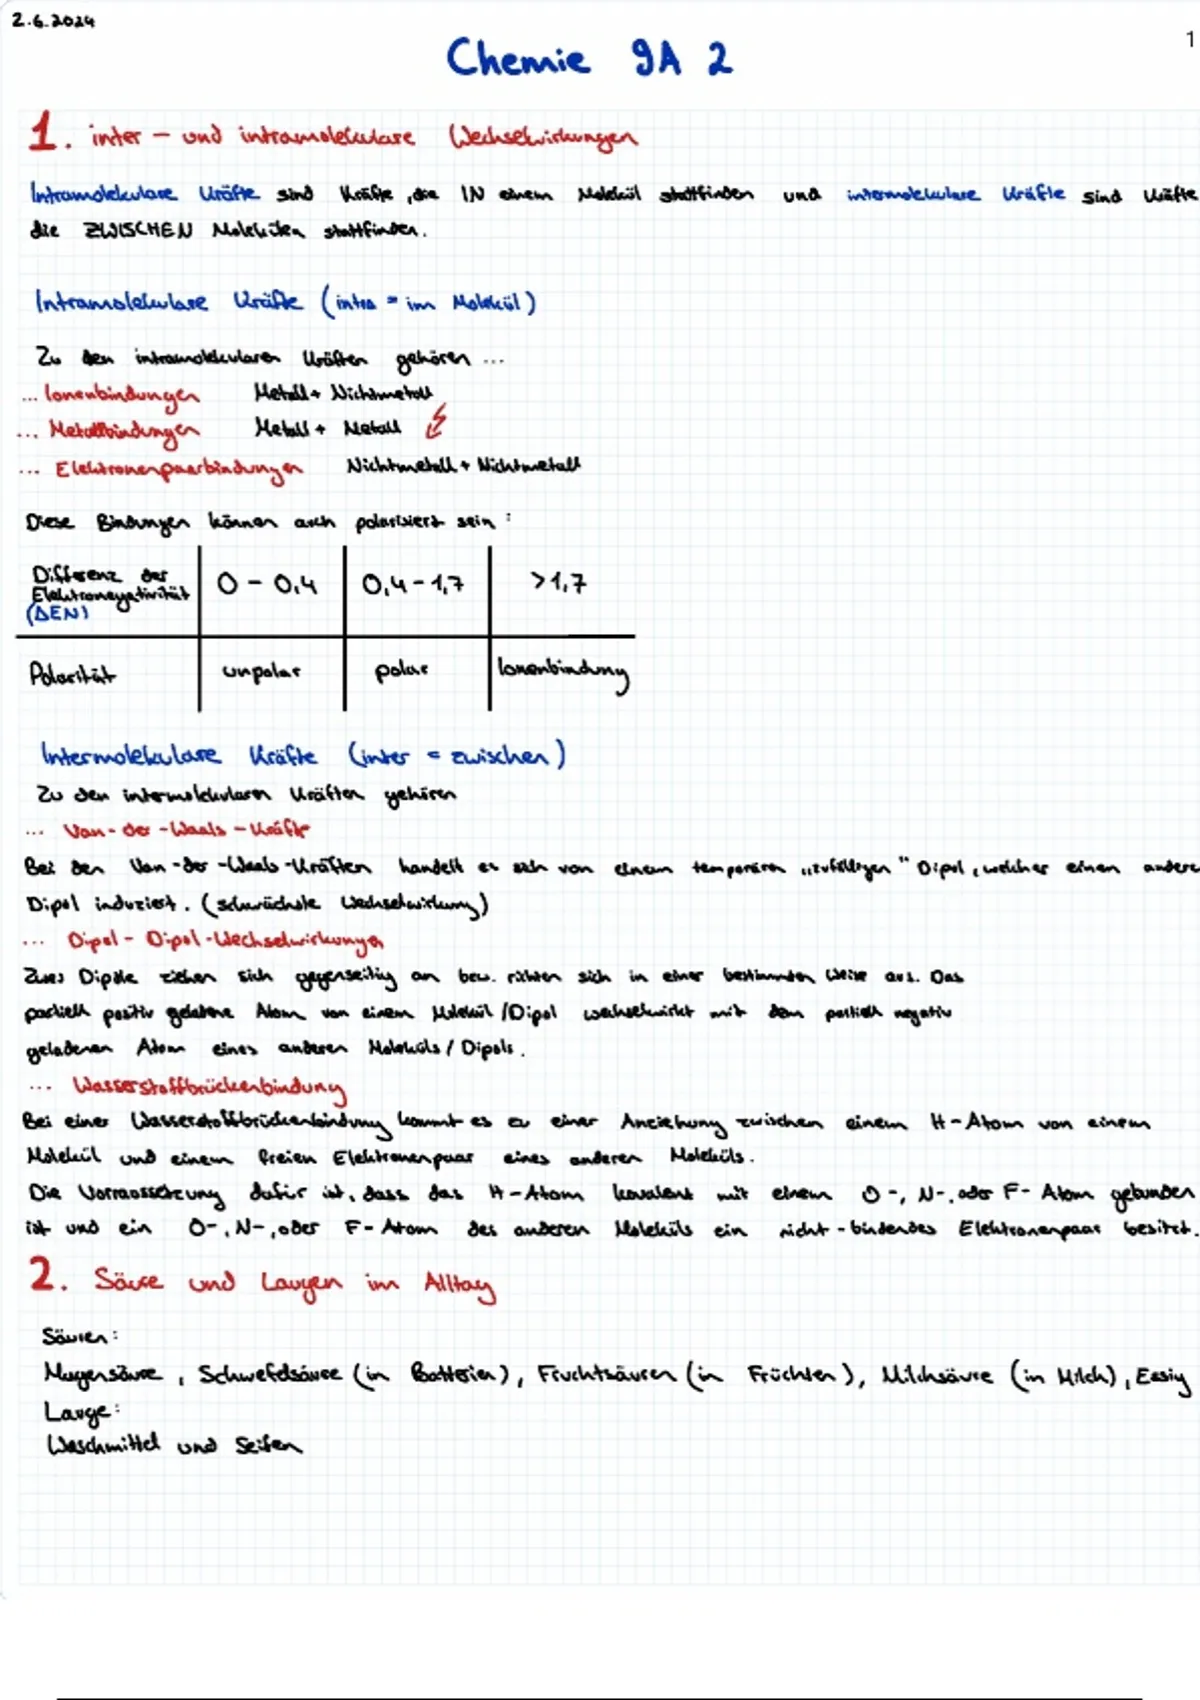 2.6.2024
1
Chemie 9A 2
1. inter – und intramolekulare Wechselwirkungen
Intramolekulare Kräfte sind Kräfte, die IN einem Molekül stattfinden und intermolekulare Kräfte sind Kräfte
die ZWISCHEN Molekülen stattfinden.
Intramolekulare Kräfte (intra = im Molekül)
Zu den intramolekularen Kräften gehören ...
... Ionenbindungen Metall + Nichtmetall
... Metallbindungen Metall + Metall
... Elektronenpaarbindungen Nichtmetall + Nichtmetall
Diese Bindungen können auch polarisiert sein:
Differenz der
Elektronegativität
(ΔEN)
0 – 0,4
0,4 – 1,7
>1,7
Polarität unpolar polar Ionenbindung
Intermolekulare Kräfte (inter = zwischen)
Zu den intermolekularen Kräften gehören
... Van-der-Waals-Kräfte
Bei den Van-der-Waals-Kräften handelt es sich von einem temporären „zufälligen" Dipol, welcher einen andere
Dipol induziert. (schwächste Wechselwirkung)
... Dipol-Dipol-Wechselwirkungen
Zwei Dipole ziehen sich gegenseitig an bzw. richten sich in einer bestimmten Weise aus. Das
partiell positiv geladene Atom von einem Molekül/Dipol wechselwirkt mit dem partiell negativ
geladenen Atom eines anderen Moleküls/Dipols.
... Wasserstoffbrückenbindung
Bei einer Wasserstoffbrückenbindung kommt es zu einer Anziehung zwischen einem H-Atom von einem
Molekül und einem freien Elektronenpaar eines anderen Moleküls.
Die Vorraussetzung dafür ist, dass das H-Atom kovalent mit einem O-, N-, oder F-Atom gebunden
ist und ein O-, N-, oder F-Atom des anderen Moleküls ein nicht-bindendes Elektronenpaar besitzt.
2. Säure und Laugen im Alltag
Säuren:
Magensäure, Schwefelsäure (in Batterien), Fruchtsäuren (in Früchten), Milchsäure (in Milch), Essig
Lauge:
Waschmittel und Seifen